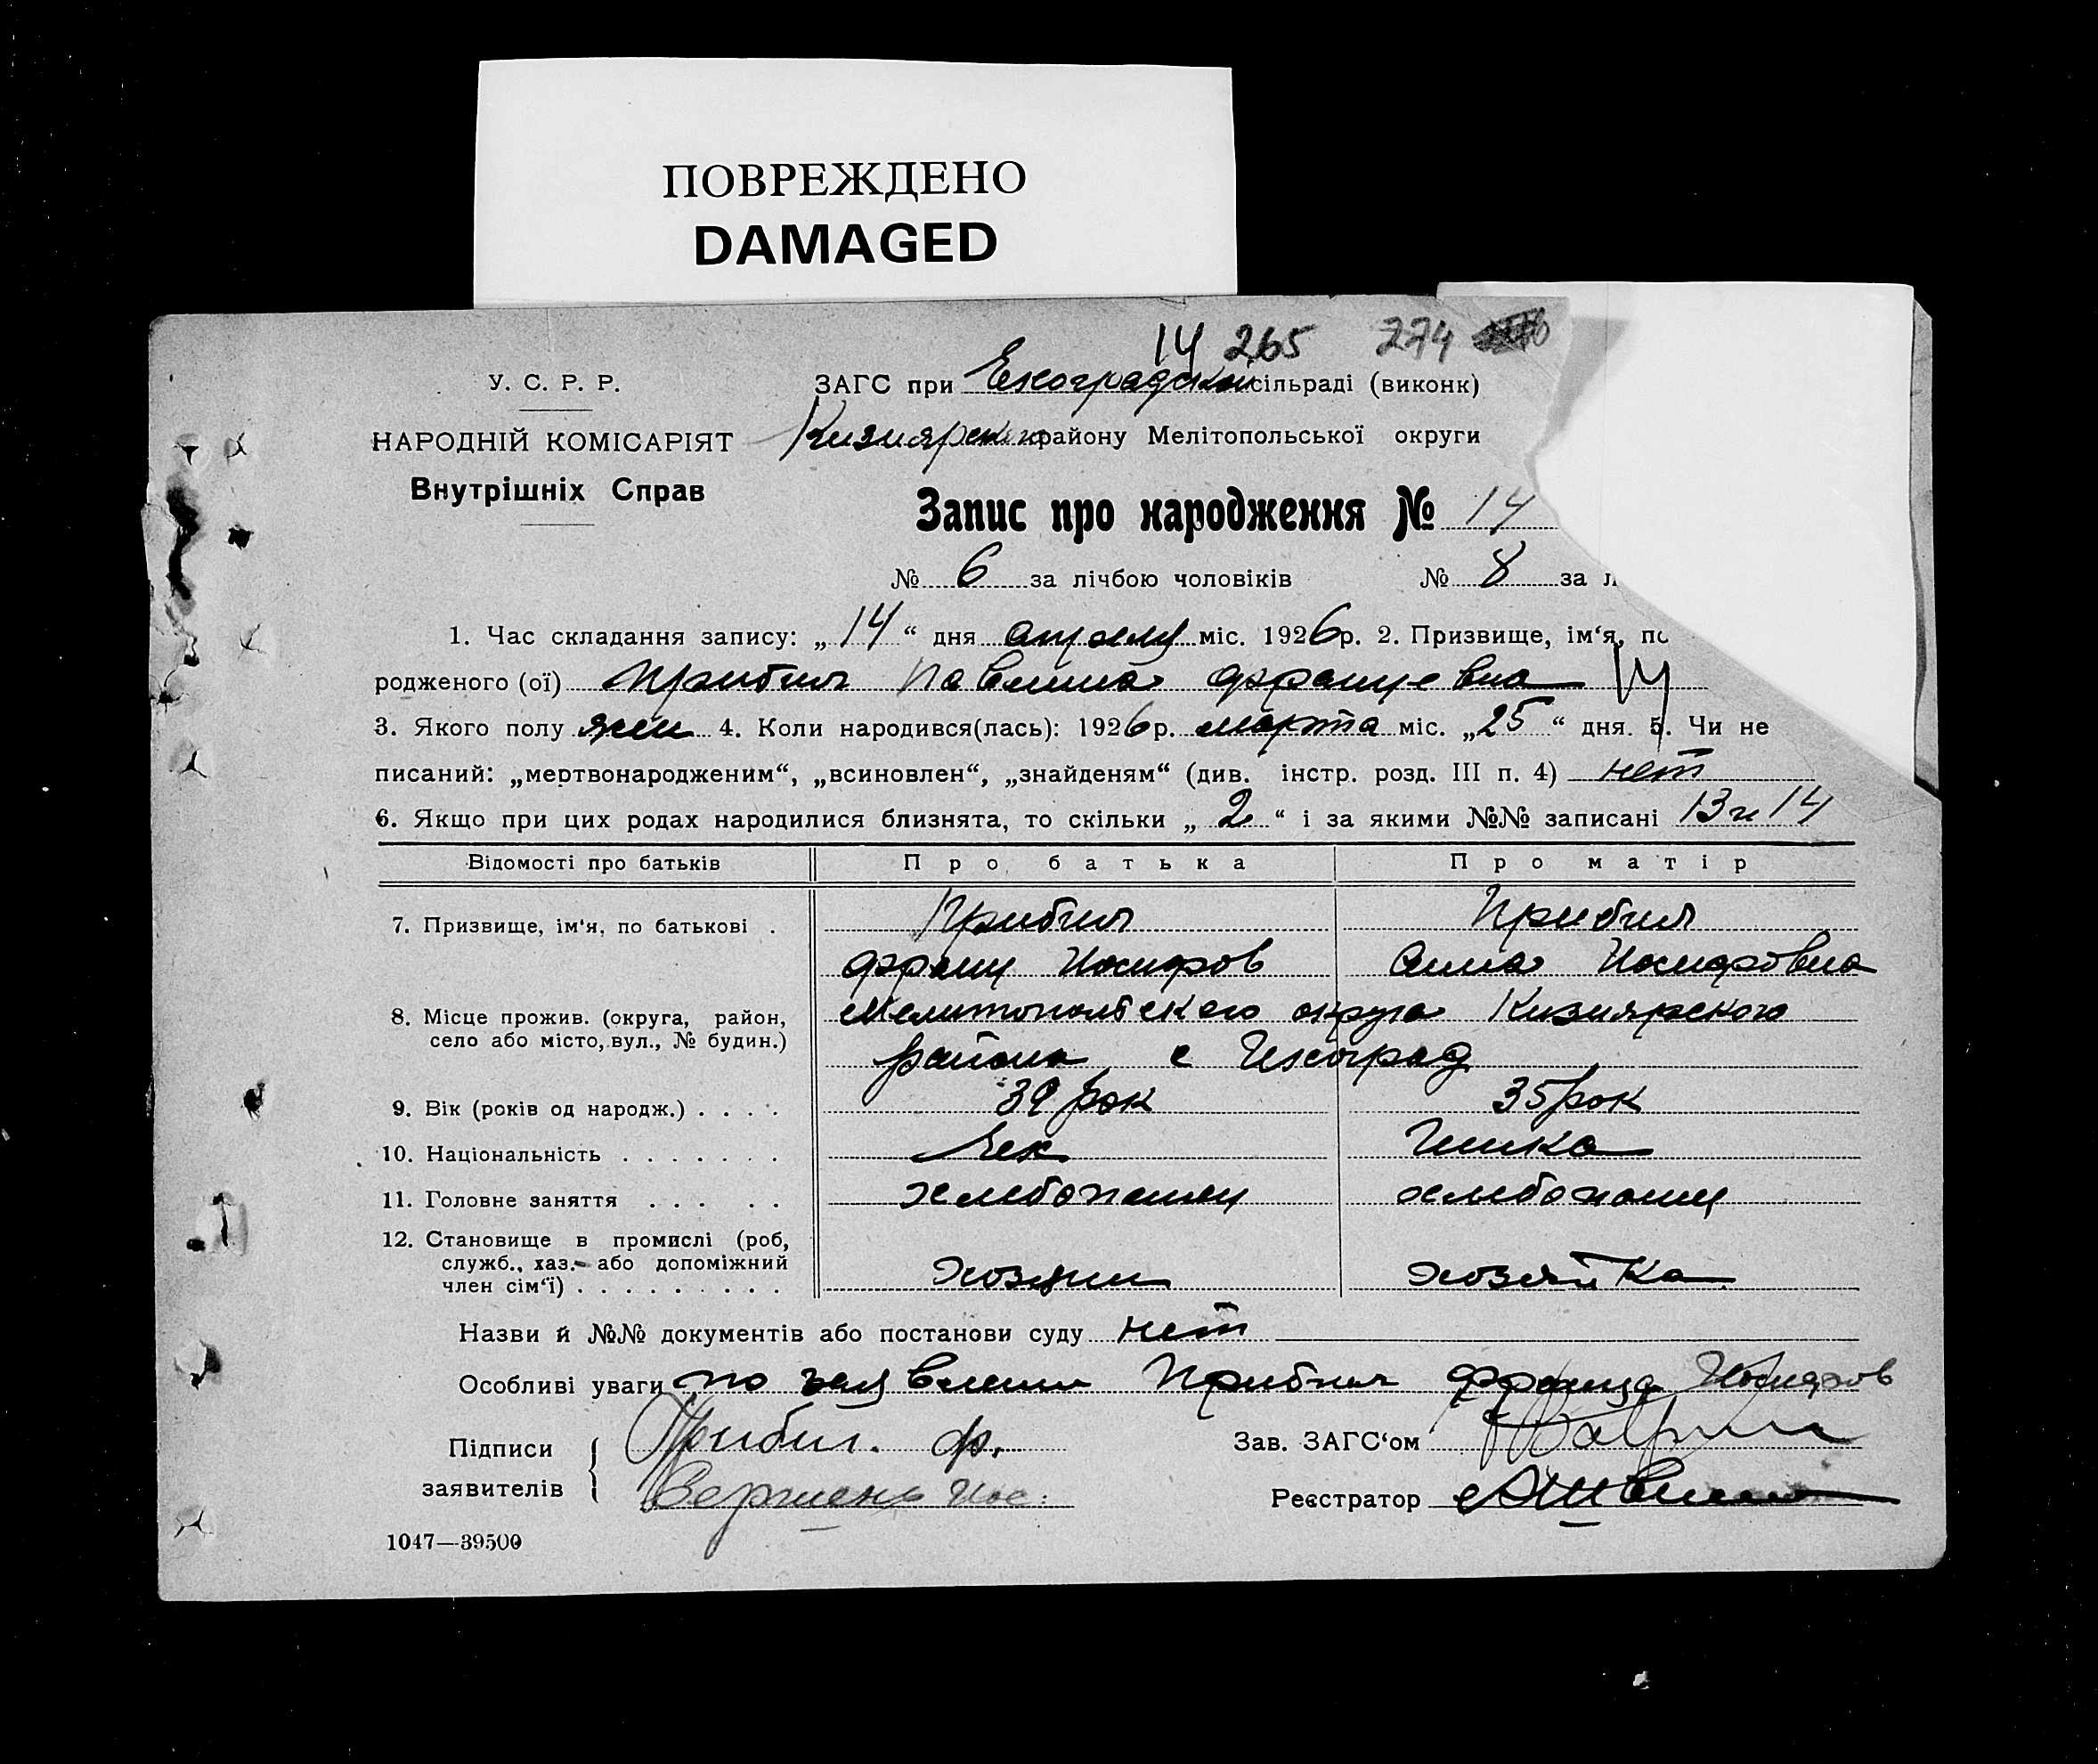 ПОВРЕЖДЕНО
DAMAGED
14 265 274
У. С. Р. Р.
НАРОДНІЙ КОМІСАРІЯТ
Внутрішніх Справ
ЗАГС при Чехоградской сільраді (виконк)
Кизиярского району Мелітопольської округи
Запис про народження № 14
№ 6 за лічбою чоловіків № 8 за л
1. Час складання запису: „14“ дня апреля міс. 1926р. 2. Призвище, ім‘я, по
родженого (ої) Прибил Павлина Францевна 14
3. Якого полу жен 4. Коли народився(лась): 1926р. марта міс. „25“ дня. 5. Чи не
писаний: „мертвонародженим“, „всиновлен“, „знайденям“ (див. інстр. розд. III п. 4) нет
6. Якщо при цих родах народилися близнята, то скільки „2“ і за якими №№ записані 13 и 14
Відомості про батьків Про батька Про матір
7. Призвище, ім‘я, по батькові . Прибил Прибил
Франц Иосифов Анна Иосифовна
8. Місце прожив. (округа, район, село або місто, вул., № будин.) Мелитопольского округа Кизиярского
района с Чехоград
9. Вік (років од народж.) . . . . 39 рок 35 рок
10. Національність . . . . . . . Чех Чешка
11. Головне заняття . . . . . хлебопашец хлебопашец
12. Становище в промислі (роб, служб., хаз. або допоміжний член сім‘ї) . . . . . . . . . хозяин хозяйка
Назви й №№ документів або постанови суду нет
Особливі уваги по заявлении Прибил Франца Иосифов
Підписи заявителів Прибил. Ф.
Зав. ЗАГС‘ом
Реєстратор
1047—39500